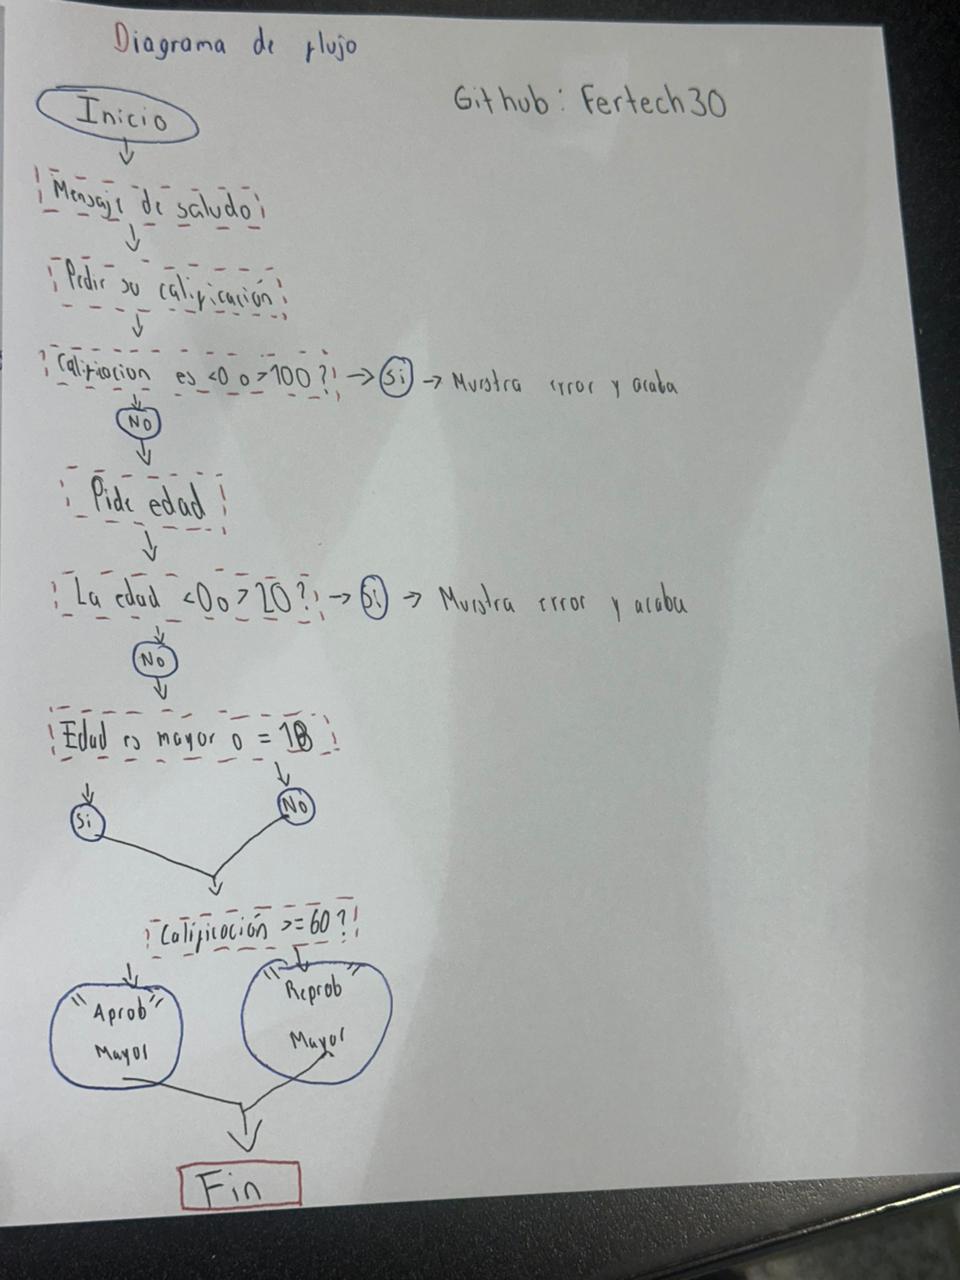 Diagrama de flujo
Github: Fertech30
Inicio
Mensaje de saludo
Pedir su calificación
Calificacion es <0 o >100? → Si → Muestra error y acaba
No
Pide edad
La edad <0 o >20? → Si → Muestra error y acaba
No
Edad es mayor o = 18
Si No
Calificación >=60?
"Aprob" "Reprob"
Mayor Mayor
Fin